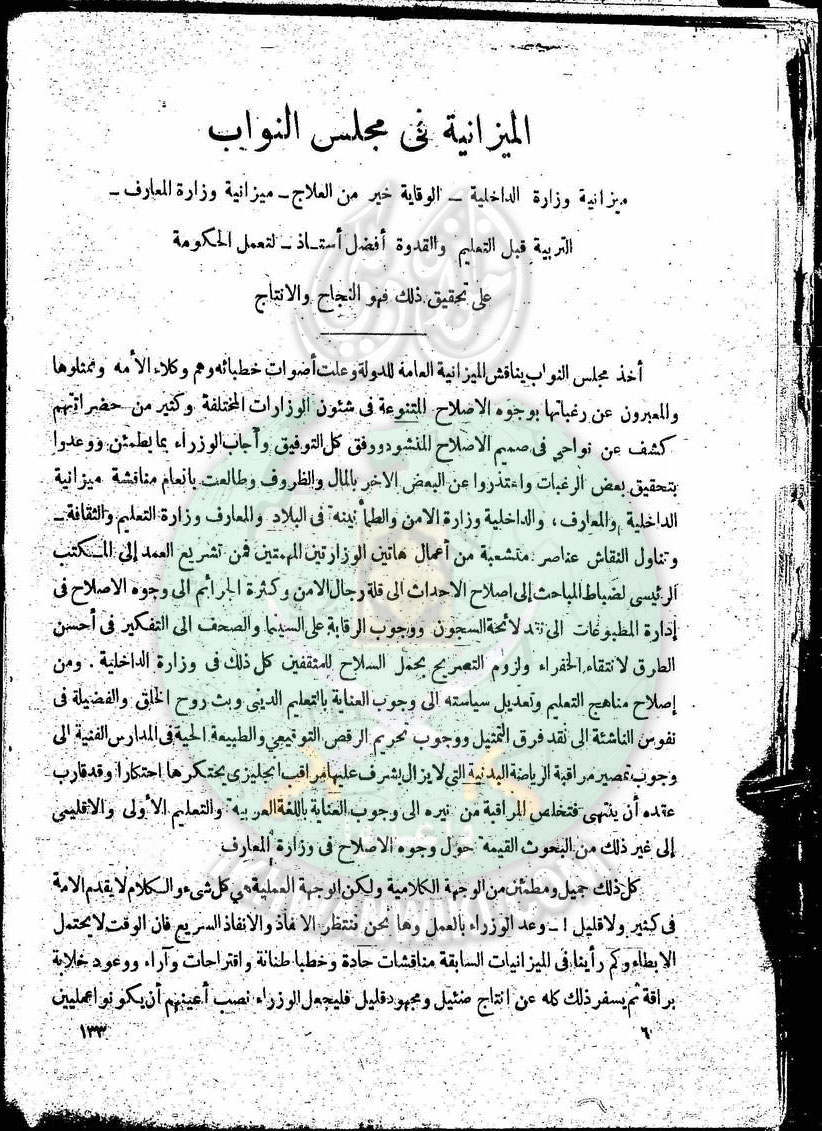 الميزانية فى مجلس النواب
ميزانية وزارة الداخلية – الوقاية خير من العلاج – ميزانية وزارة المعارف –
التربية قبل التعليم والقدوة أفضل أستاذ – لتعمل الحكومة
على تحقيق ذلك فهو النجاح والانتاج
أخذ مجلس النواب يناقش الميزانية العامة للدولة وعلت أصوات خطبائه وهم وكلاء الأمه وممثلوها
والمعبرون عن رغباتها بوجوه الاصلاح المتنوعة فى شئون الوزارات المختلفة وكثير من حضراتهم
كشف عن نواحي فى صميم الاصلاح المنشود ووفق كل التوفيق وأجاب الوزراء بما يطمئن ووعدوا
بتحقيق بعض الرغبات واعتذروا عن البعض الاخر بالمال والظروف وطالعت بانعام مناقشة ميزانية
الداخلية والمعارف، والداخلية وزارة الامن والطمأنينة فى البلاد والمعارف وزارة التعليم والثقافة –
وتناول النقاش عناصر متشعبة من أعمال هاتين الوزارتين المهمتين فمن تشريع العمد إلى المكتب
الرئيسى لضباط المباحث إلى اصلاح الاحداث الى قلة رجال الامن وكثرة الجرائم الى وجوه الاصلاح فى
إدارة المطبوعات الى نقد لائحة السجون ووجوب الرقابة على السينما والصحف الى التفكير فى أحسن
الطرق لانتقاء الخفراء ولزوم التصريح بحمل السلاح للمثقفين كل ذلك فى وزارة الداخلية . ومن
إصلاح مناهج التعليم وتعديل سياسته الى وجوب العناية بالتعليم الدينى وبث روح الخلق والفضيلة فى
نفوس الناشئة الى نقد فرق التمثيل ووجوب تحريم الرقص التوقيعى والطبيعة الحية فى المدارس الفنية الى
وجوب تمصير مراقبة الرياضة البدنية التى لايزال يشرف عليها مراقب انجليزى يحتكرها احتكارا وقد قارب
عقده أن ينتهى فتخلص المراقبة من نيره الى وجوب العناية باللغة العربية والتعليم الأولى والاقليمى
إلى غير ذلك من البحوث القيمة حول وجوه الاصلاح فى وزارة المعارف
كل ذلك جميل ومطمئن من الوجهة الكلامية ولكن الوجهة العملية هى كل شىء والكلام لا يقدم الامة
فى كثير ولا قليل ! – وعد الوزراء بالعمل وها نحن ننتظر الانفاذ والانفاذ السريع فان الوقت لا يحتمل
الابطاء وكم رأينا فى الميزانيات السابقة مناقشات حادة وخطبا طنانة واقتراحات وآراء ووعود خلابة
براقة ثم يسفر ذلك كله عن انتاج ضئيل ومجهود قليل فليجعل الوزراء نصب أعينهم أن يكونوا عمليين
٦
١٣٣